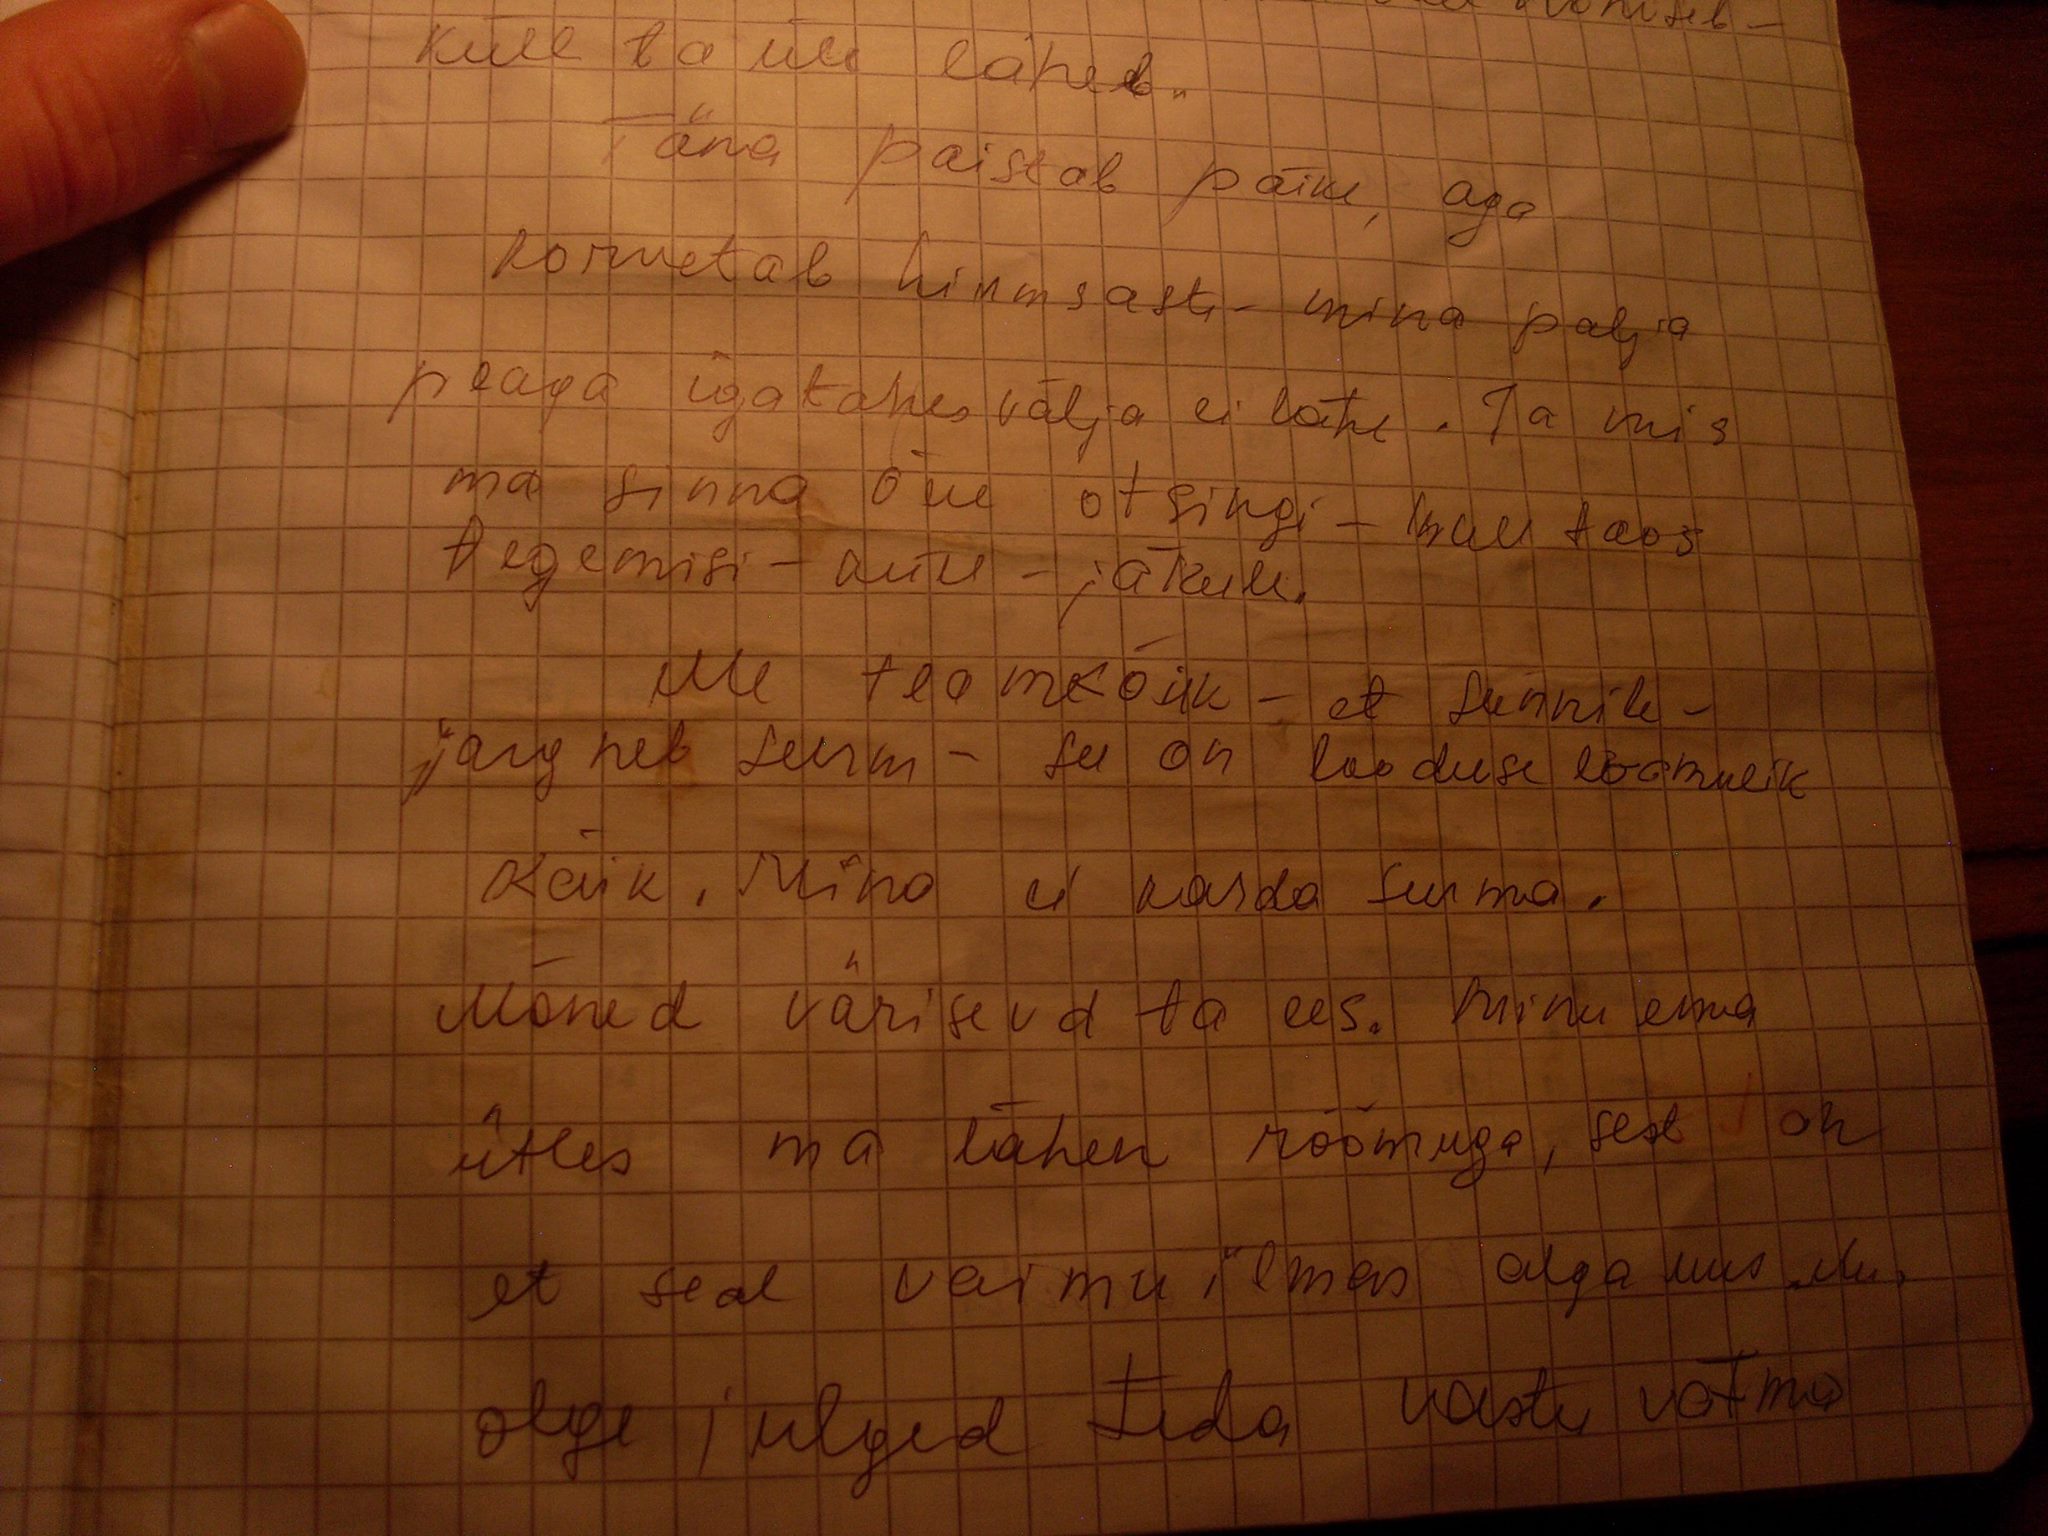 küll ta üle läheb.
Täna paistab päike, aga
korvetab hirmsasti – mina palja
peaga igatahes välja ei lähe. Ja mis
ma sinna õue otsingi – mull toas
tegemisi – küll – jätkub.
Me teame kõik – et sünnile –
järgneb surm – see on looduse loomulik
käik. Mina ei karda surma.
Mõned värisevd ta ees. Minu ema
ütles ma lähen rõõmuga, sest on
et seal vaimu ilmas alga uus elu.
olge julged teda vastu võtma